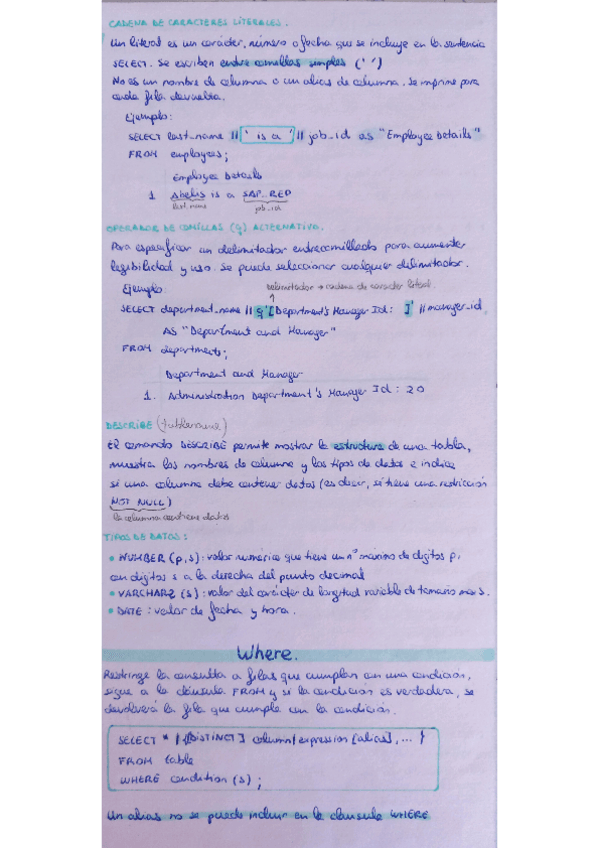 CADENA DE CARACTERES LITERALES.
Un literal es un carácter, número o fecha que se incluye en la sentencia
SELECT. Se escriben entre comillas simples (' ')
No es un nombre de columna o un alias de columna. Se imprime para
cada fila devuelta.
Ejemplo:
SELECT last_name || ' is a ' || job_id as "Employee Details"
FROM employees;
Employee Details
1 Abel is a SAP_REP
last_name job_id
OPERADOR DE COMILLAS (q) ALTERNATIVO.
Para especificar un delimitador entrecomillado para aumentar
legibilidad y uso. Se puede seleccionar cualquier delimitador.
Ejemplo delimitador → cadena de carácter literal.
SELECT department_name || q'[Department's Manager Id: ]' || manager_id
AS "Department and Manager"
FROM departments;
Department and Manager
1. Administration Department's Manager Id: 20
DESCRIBE (tablename)
El comando DESCRIBE permite mostrar la estructura de una tabla,
muestra los nombres de columna y los tipos de datos e indica
si una columna debe contener datos (es decir, si tiene una restricción
NOT NULL)
la columna contiene datos
TIPOS DE DATOS:
• NUMBER (p,s): valor numérico que tiene un nº máximo de dígitos p,
con dígitos s a la derecha del punto decimal
• VARCHAR2 (s): valor del carácter de longitud variable de tamaño max s.
• DATE: valor de fecha y hora.
Where.
Restringe la consulta a filas que cumplan con una condición,
sigue a la cláusula FROM y si la condición es verdadera, se
devolverá la fila que cumpla con la condición.
SELECT * | {[DISTINCT] column/expression [alias], ... }
FROM table
WHERE condition (s);
Un alias no se puede incluir en la cláusula WHERE